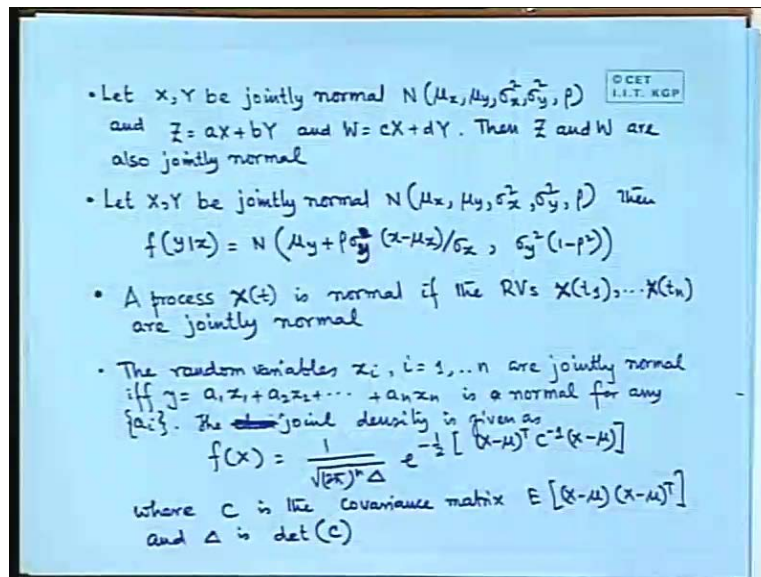 • Let X, Y be jointly normal N(μx, μy, σx², σy², ρ)
© CET
I.I.T. KGP
and Z = aX + bY and W = cX + dY. Then Z and W are
also jointly normal
• Let X, Y be jointly normal N(μx, μy, σx², σy², ρ) Then
f(y|x) = N(μy + ρσy (x-μx)/σx, σy²(1-ρ²))
• A process X(t) is normal if the RVs X(t1), ... X(tn)
are jointly normal
• The random variables xi, i = 1, .. n are jointly normal
iff y = a1x1 + a2x2 + ... + anxn is a normal for any
{ai}. The joint density is given as
f(x) = 1/√((2π)ⁿ Δ) e^-½[(x-μ)ᵀ C⁻¹ (x-μ)]
where C is the covariance matrix E[(x-μ)(x-μ)ᵀ]
and Δ is det(C)